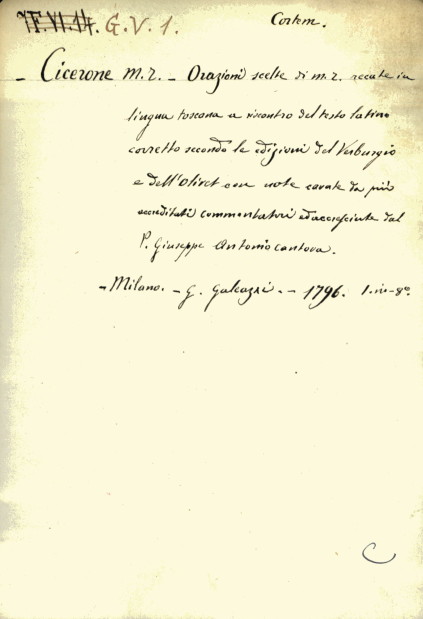 F.VI.14. G.V.1. Cortem.
– Cicerone M. T. – Orazioni scelte di M. T. recate in
lingua toscana a riscontro del testo latino
corretto secondo le edizioni del Verburgio
e dell'Olivet con note cavate da più
accreditati commentatori ed accresciute dal
P. Giuseppe Antonio Cantova.
– Milano. – G. Galeazzi. – 1796. 1. in-8º.
C